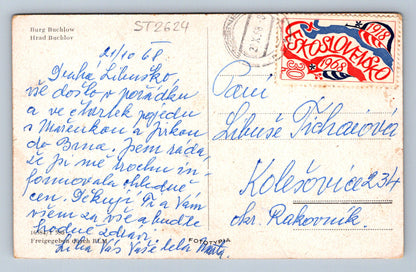 Burg Buchlow
Hrad Buchlov
ST2624
21/10 68
Drahá Libuško
vše došlo v pořádku
a ve čtvrtek pojedu
s Mařenkou a Jirkou
do Brna. Jsem ráda,
že jsi mě trochu in-
formovala ohledně
cen. Děkuji Ti a Vám
všem za vše a buďte
hodně zdraví
Líbá Vás Vaše teta Marta
Freigegeben durch RLM
FOTOTYPIA
ČESKOSLOVENSKO
1918
1968
30
Paní
Libuše Tichaiová
Kolešovice 234
okr. Rakovník.